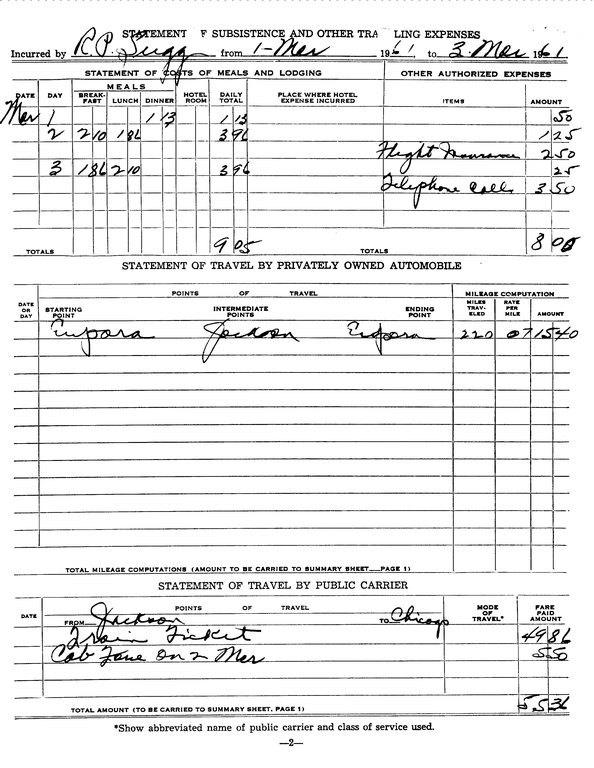 STATEMENT F SUBSISTENCE AND OTHER TRA LING EXPENSES
Incurred by R.P. Sugg from 1-Mar 1961, to 3 Mar 1961
STATEMENT OF COSTS OF MEALS AND LODGING OTHER AUTHORIZED EXPENSES
DATE DAY MEALS BREAK-FAST LUNCH DINNER HOTEL ROOM DAILY TOTAL PLACE WHERE HOTEL EXPENSE INCURRED ITEMS AMOUNT
Mar 1 1 13 1 13 50
2 2 10 1 86 3 96 1 25
Flight Insurance 2 50
3 1 86 2 10 3 96 25
Telephone Calls 3 50
TOTALS 9 05 TOTALS 8 00
STATEMENT OF TRAVEL BY PRIVATELY OWNED AUTOMOBILE
DATE OR DAY POINTS OF TRAVEL MILEAGE COMPUTATION
STARTING POINT INTERMEDIATE POINTS ENDING POINT MILES TRAV-ELED RATE PER MILE AMOUNT
Eupora Jackson Eupora 220 07 15 40
TOTAL MILEAGE COMPUTATIONS (AMOUNT TO BE CARRIED TO SUMMARY SHEET PAGE 1)
STATEMENT OF TRAVEL BY PUBLIC CARRIER
DATE POINTS OF TRAVEL MODE OF TRAVEL* FARE PAID AMOUNT
FROM Jackson TO Chicago
Train Ticket 49 86
Cab Fare On 2 Mar 5 50
TOTAL AMOUNT (TO BE CARRIED TO SUMMARY SHEET, PAGE 1) 55 36
*Show abbreviated name of public carrier and class of service used.
—2—